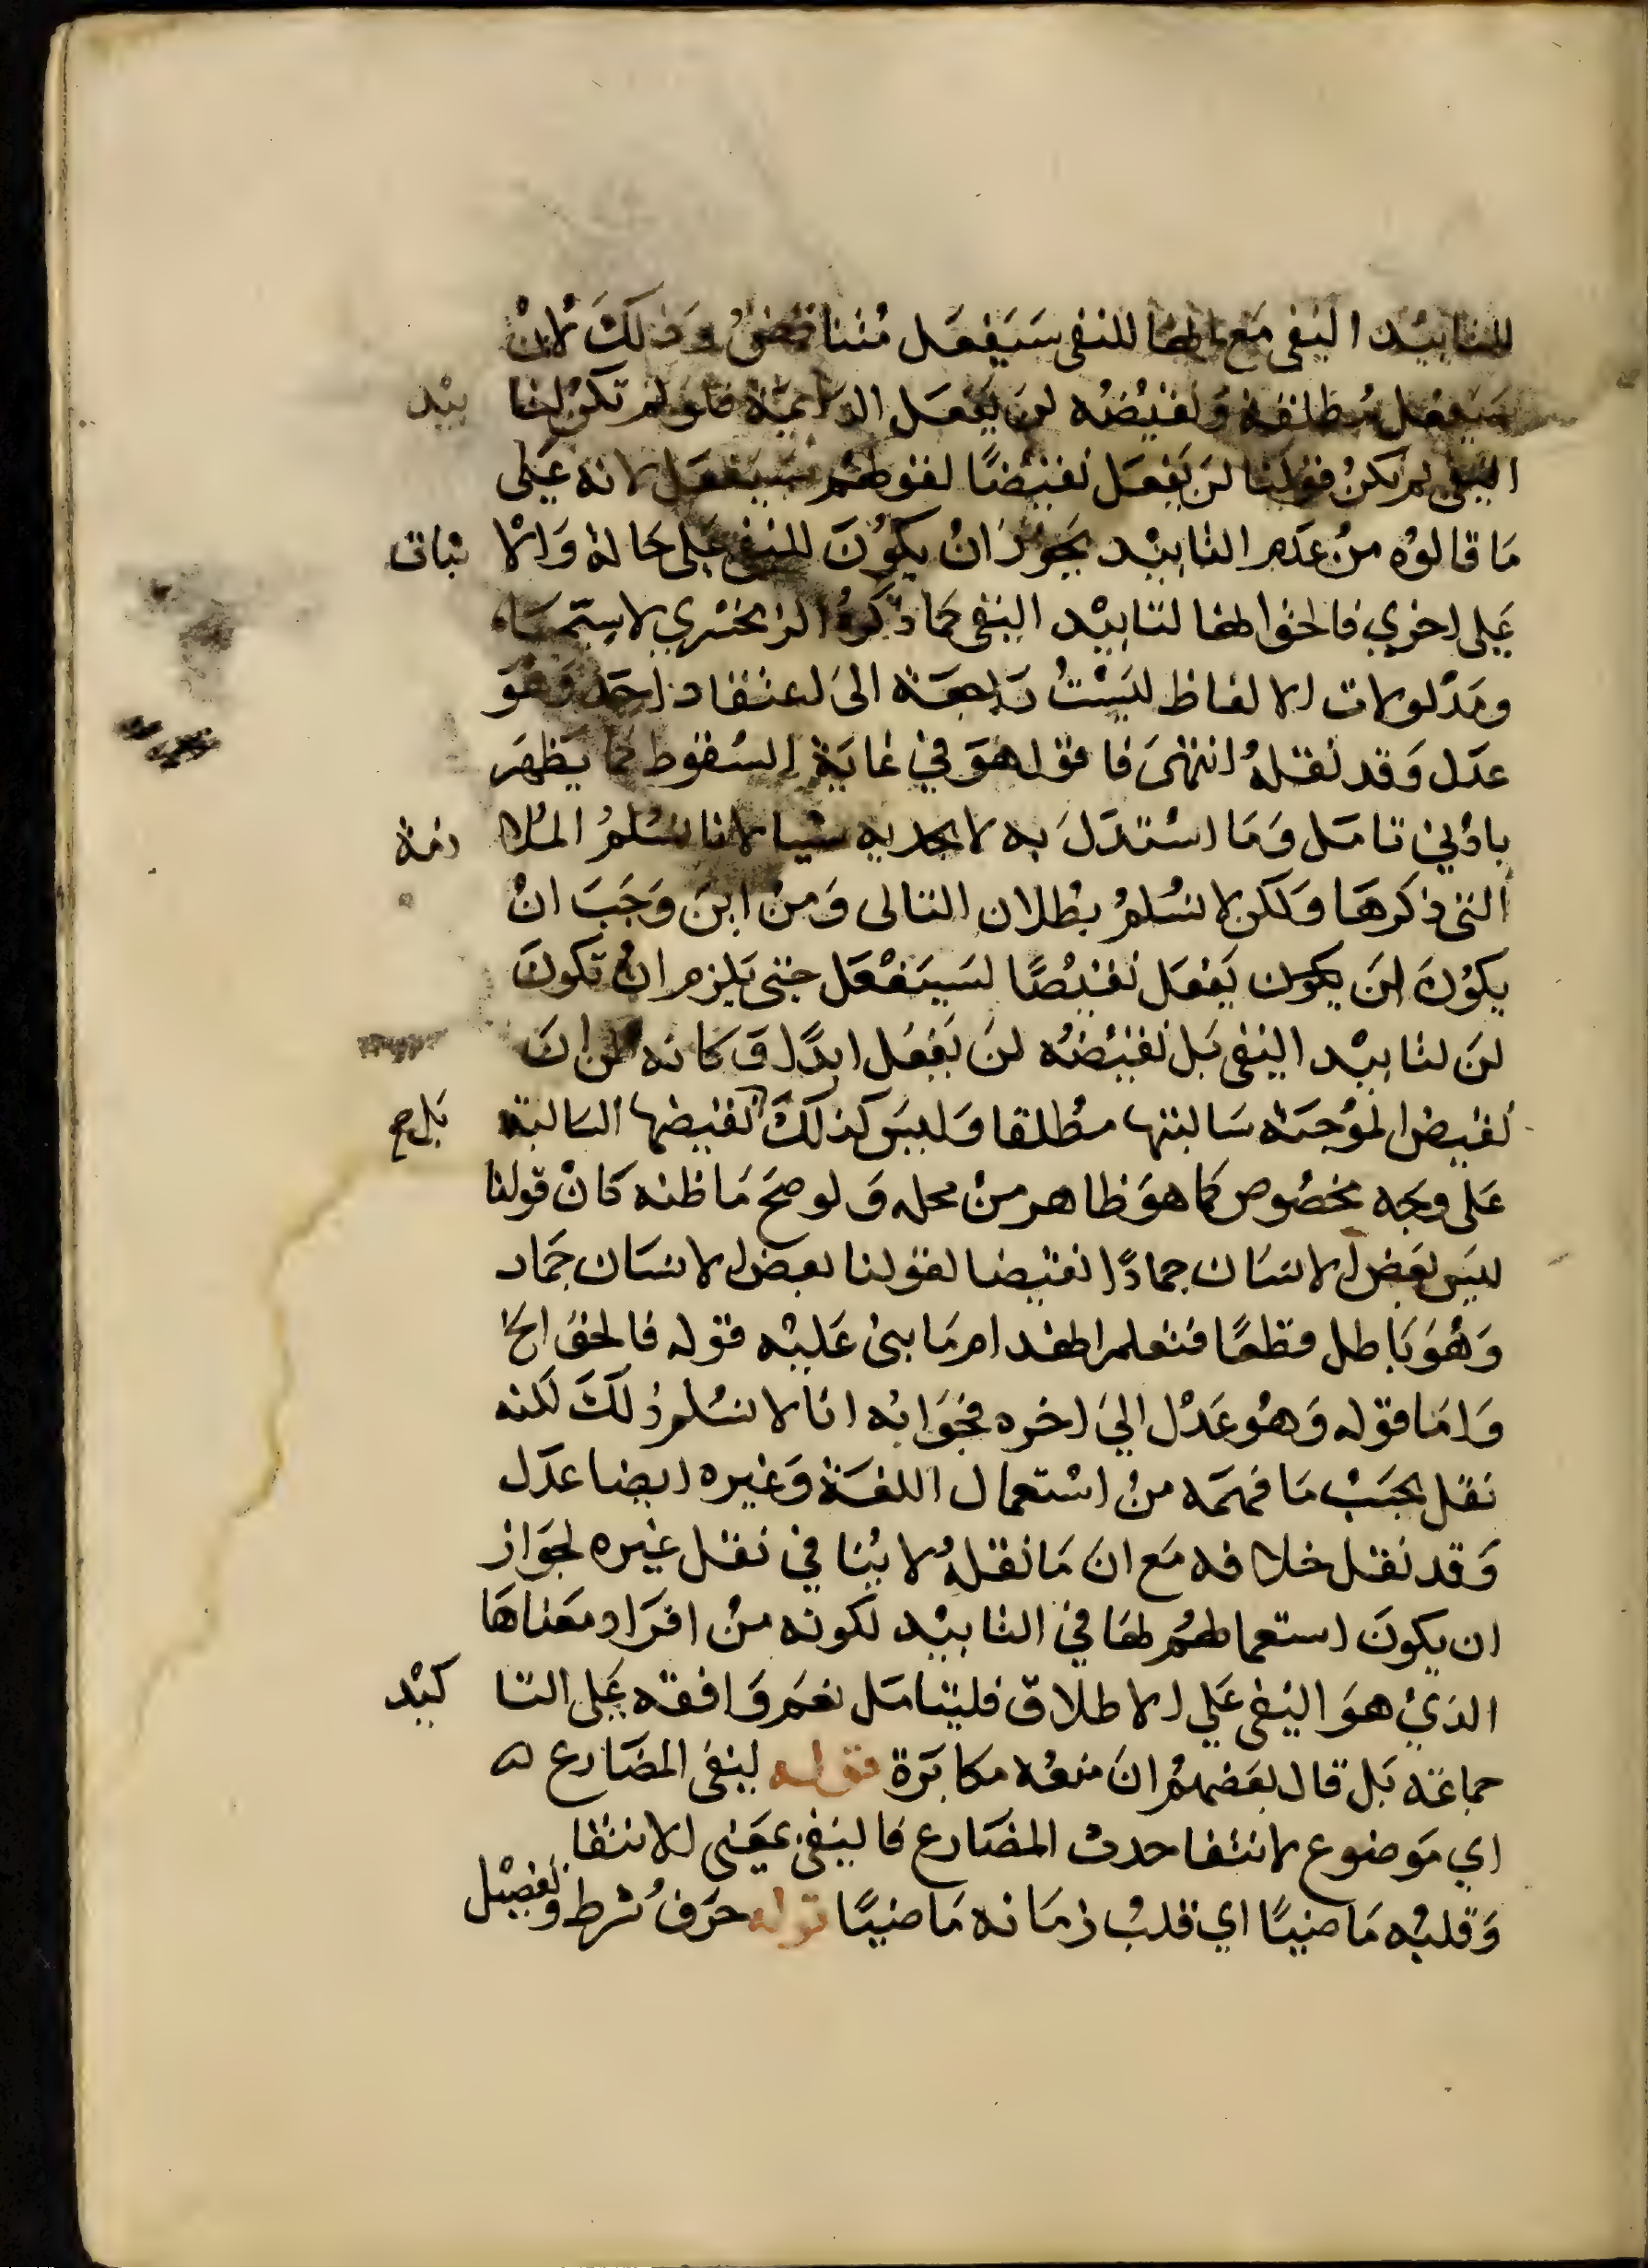 للتابيد النفى مَع انها للنفى سَيَفعَل مُتناقض وَذلكَ لانْ
سَيفعل مطلقة وَنقيضُه لن يَفعَل الدايمَة فلو لم تكن لتا بيْد
النفى لم يكنْ قولنا لن يَفعَل نقيضًا لقولهم سَيَفعَل لانه عَلى
مَا قالوُه منْ عَدَم التابيْد يجَوزُ انْ يكوُنَ للنفى عَلى حَالة وَالا ثبات
عَلى اخرى فالحق انها لتابيْد النفى كما ذكرَهُ الزمخشري لاسِيّمَا،
ومَدلولات الالفاظ ليسَتْ رَاجعَة الى اعتقاد احَد وَهوَ
عَدل وَقد نقلهُ انتهىَ فاقول هوَ في غايَة السُقوط كما يَظهَر
بادْني تامَل وَمَا اسْتدَلَ به لا يجديه شيا لانا نسُلمُ المُلا زمة
التى ذكرهَا وَلكن لا نسُلمُ بطْلان التالى وَمنْ اينَ وَجَبَ انْ
يكوُنَ لنَ يكون يَفعَل نقيْضًا لسَيَفْعَل حتى يَلزم انْ تكونَ
لنَ لتابيْد النفى بَل نقيْضُه لنَ يَفعَل ابدًا وَكانه ظن انَ
نقيض الموُجبَة سَالبتها مطْلقا وَليسَ كذلكَ نقيضها السَالبة بَل ح
عَلى وجَه مخصُوص كما هوَ ظاهر منْ محله وَلو صحَ مَا ظنه كانْ قولنا
ليسَ بَعض الانسَان جمادًا نقيضا لقولنا بعض الانسَان جمَاد
وَهُوَ بَاطل قطعًا فتعلم انهدام مَا بنى عَليْه قوله فالحق الخ
وَامَا قوله وَهُو عَدْل اليَ اخره فجَوَابُه انا لا نسُلم ذلكَ لكنه
نقل بحَسَبْ مَا فهمَه منْ اسْتعمال اللغَة وَغيره ايضا عدَل
وَقد نقل خلافه مَع انَ مَا نقلهُ لا يُنا في نقل غيره لجوَاز
ان يكونَ استعمالهُم لهَا في التابيْد لكونه منْ افرَاد معَناهَا
الذىْ هوَ النفى عَلى الاطلاق فليتامَل نعَم وَافقه عَلى التا كيْد
جماعَة بَل قال بعَضهمُ انَ منعُه مكابَرة قوله لنفى المضَارع ه
اي مَوضوع لانتفا حدث المضَارع فالنفى بمعَنى الانتفا
وَقلبُه مَاضيًا اي قلبُ زمَانه مَاضيًا قوله حرَفُ شرط وتفصيْل